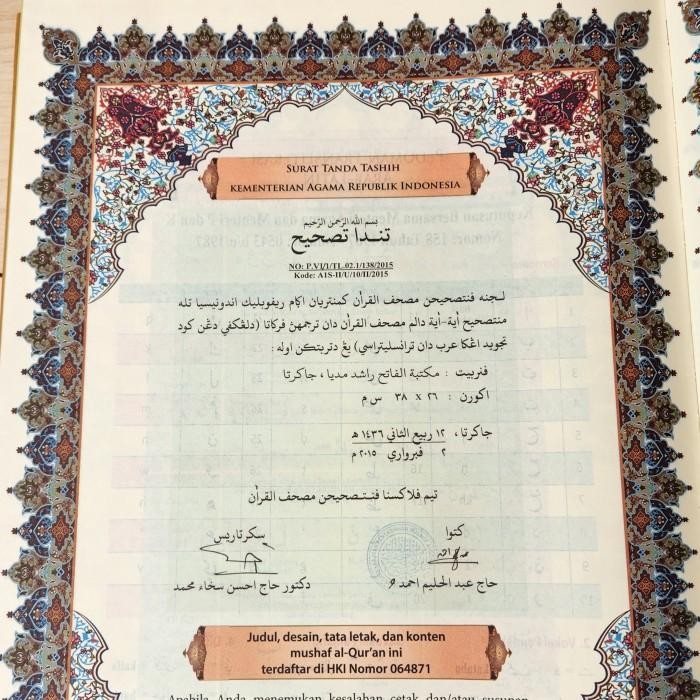 SURAT TANDA TASHIH
KEMENTERIAN AGAMA REPUBLIK INDONESIA
بسم الله الرحمن الرحيم
تندا تصحيح
NO: P.VI/I/TL.02.1/138/2015
Kode: A1S-II/U/10/II/2015
لجنه فنتصحيحن مصحف القرأن كمنتريان اڬام ريفوبليك اندونيسيا تله
منتصحيح أية-أية دالم مصحف القرأن دان ترجمهن فركاتا (دلڠكفي دڠن كود
تجويد اڠكا عرب دان ترانسليتراسي) يڠ دتربتكن اوله :
فنربيت : مكتبة الفاتح راشد مديا ، جاكرتا
اكورن : ٢٦ x ٣٨ س م
جاكرتا ، ١٢ ربيع الثاني ١٤٣٦ ه
٢ فبرواري ٢٠١٥ م
تيم فلاكسنا فنتصحيحن مصحف القرأن
كتوا سكرتاريس
حاج عبد الحليم احمد دكتور حاج احسن سخاء محمد
Judul, desain, tata letak, dan konten
mushaf al-Qur'an ini
terdaftar di HKI Nomor 064871
Apabila Anda menemukan kesalahan cetak dan/atau susunan